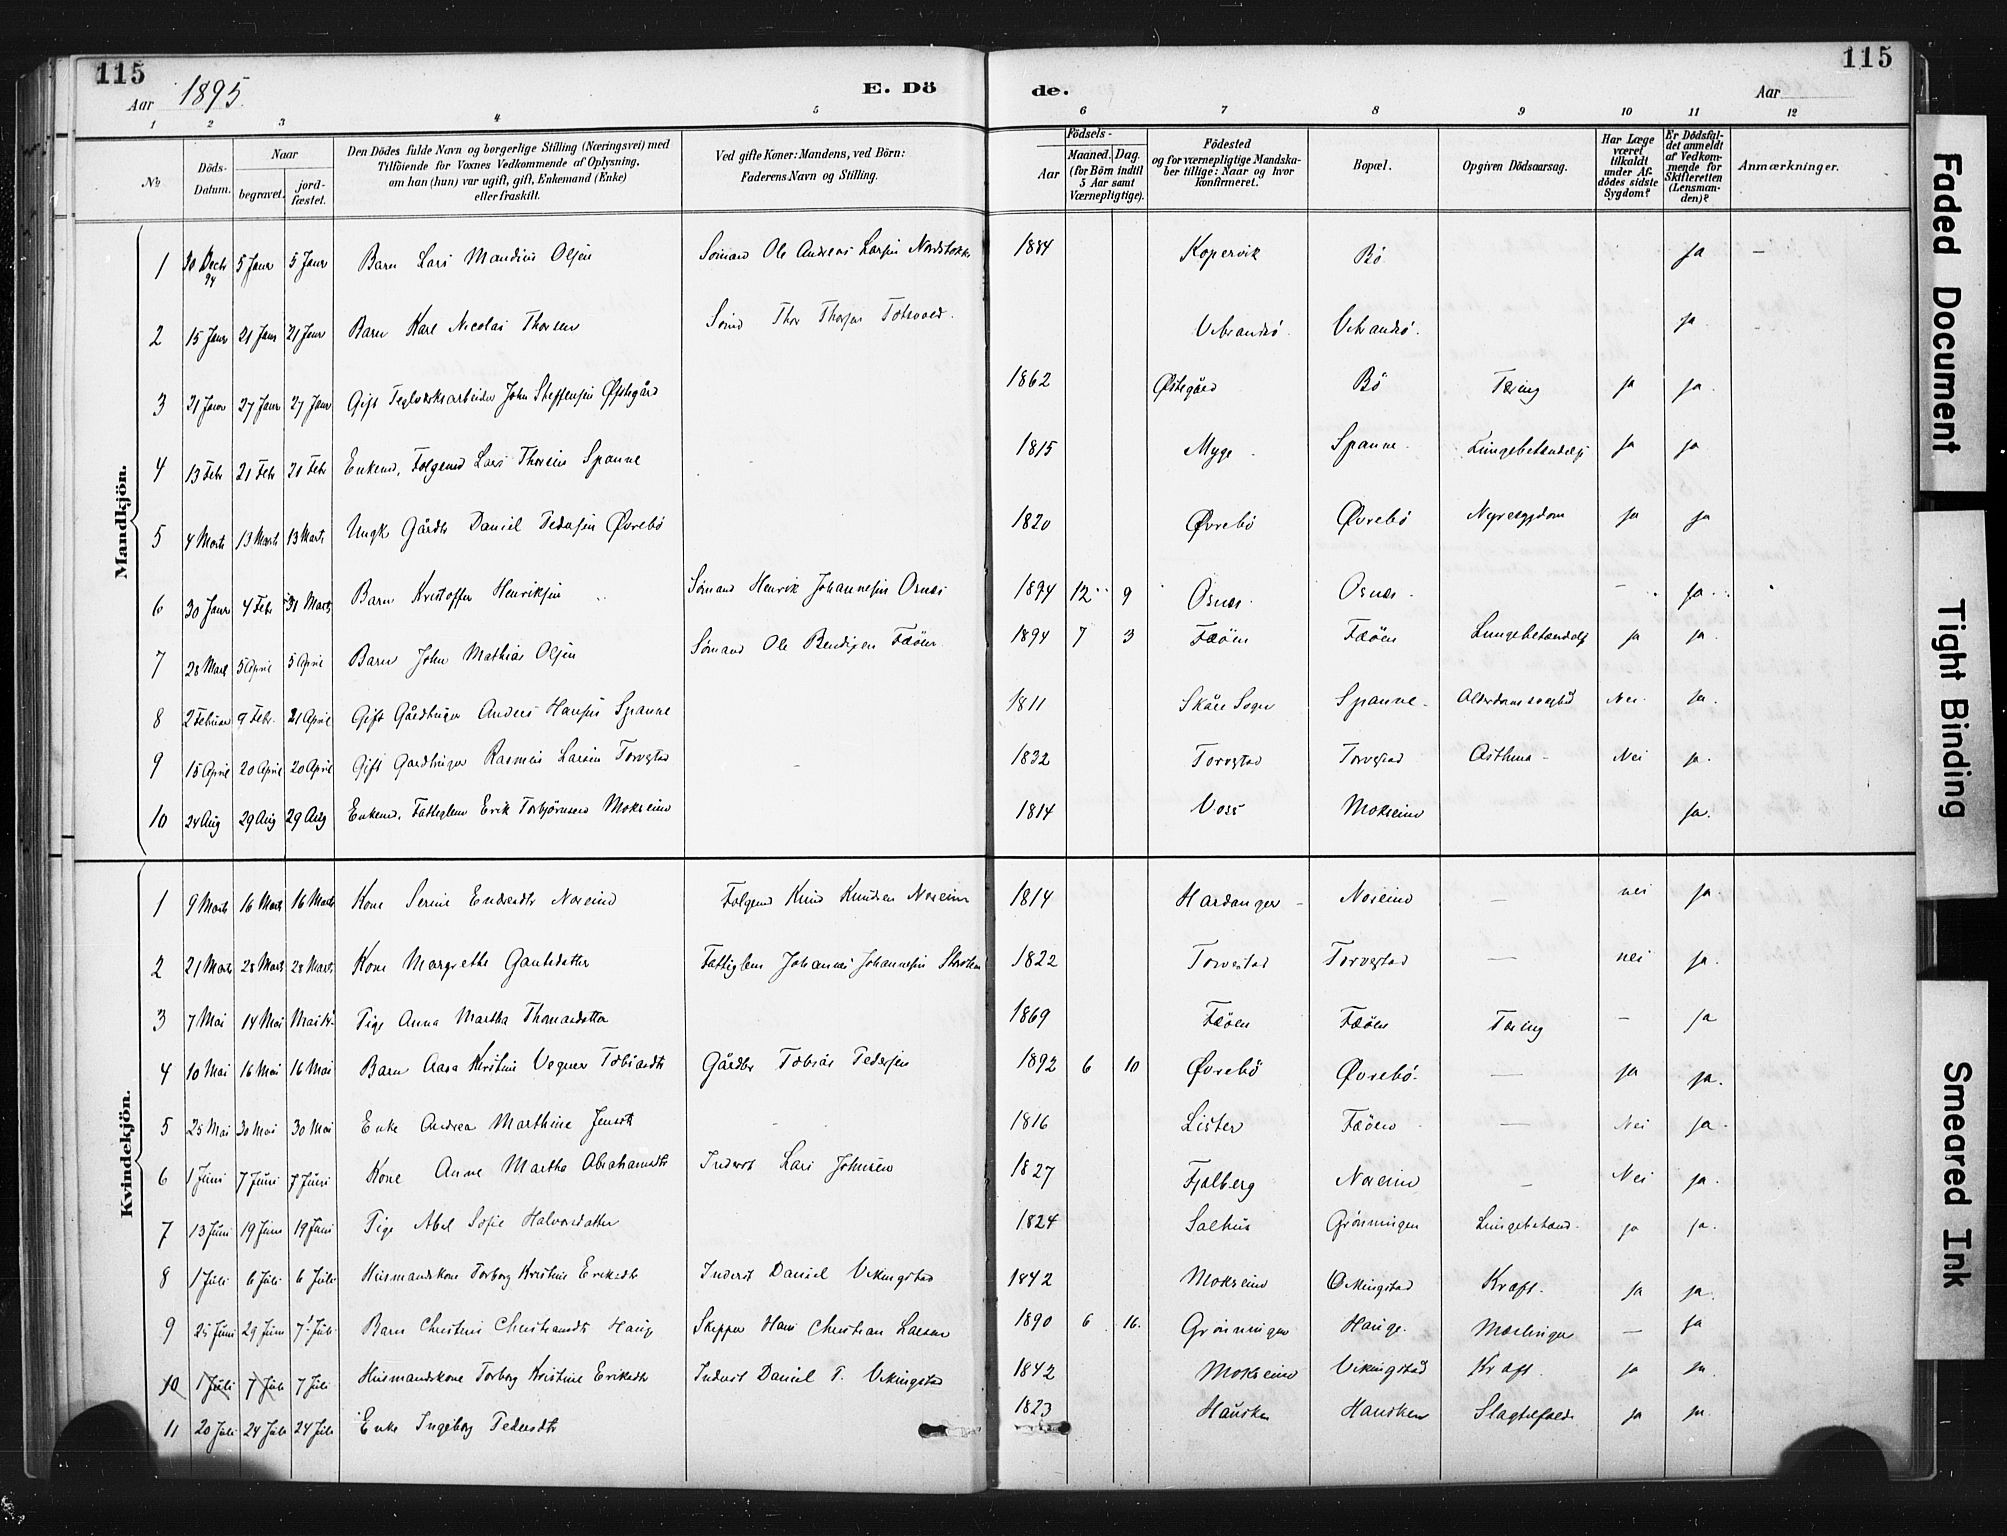 115
Aar 1895.
E. Dö
de.
Aar
115
1 2 3 4 5 6 7 8 9 10 11 12
No
Döds-Datum.
Naar
begravet.
jord-fæstet.
Den Dödes fulde Navn og borgerlige Stilling (Næringsvei) med
Tilföiende for Voxnes Vedkommende af Oplysning,
om han (hun) var ugift, gift, Enkemand (Enke)
eller fraskilt.
Ved gifte Koner: Mandens, ved Börn:
Faderens Navn og Stilling.
Födsels-
Aar
Maaned. Dag.
(for Börn indtil
5 Aar samt
Værnepligtige).
Födested
og for værnepligtige Mandska-
ber tillige: Naar og hvor
konfirmeret.
Bopæl.
Opgiven Dödsaarsag.
Har Læge
været
tilkaldt
under Af-
dödes sidste
Sygdom?
Er Dödsfal-
det anmeldt
af Vedkom-
mende for
Skifteretten
(Lensman-
den)?
Anmærkninger.
Mandkjön.
1 30 Decbr 94 5 Janr 5 Janr Barn Lars Mandius Olsen Sømand Ole Andreas Larsen 1884 Kopervik Bö ja
2 15 Janr 21 Janr 21 Janr Barn Karl Nicolai Thorsen Thor Thorsen ja
3 21 Janr 27 Janr 27 Janr Gift Teglverksarbeider John Steffensen Østegård 1862 Østegård Bö Tæring ja ja
4 13 Febr 21 Febr 21 Febr Enkem. Folgemd Lars Thorsen Spanne 1815 Myge Spanne Lungebetændelse ja ja
5 4 Marts 13 Marts 13 Marts Ungk Gårdbr Daniel Pedersen Øvrebö 1820 Øvrebö Øvrebö Nyresygdom ja ja
6 30 Janr 4 Febr 31 Marts Barn Kristoffer Henriksen Sømand Henrik Johannesen Osnes 1894 12 9 Osnes Osnes — ja
7 28 Marts 5 April 5 April Barn John Mathias Olsen Sømand Ole Bendixen Fæöen 1894 7 3 Fæöen Fæöen Lungebetændelse ja ja
8 2 Februar 9 Febr. 21 April Gift Gårdbruger Anders Hansen Spanne 1811 Skåre Sogn Spanne Alderdomssvaghed Nei ja
9 15 April 20 April 20 April Gift Gaardbruger Rasmus Larsen Torvestad 1832 Torvestad Torvestad Asthma Nei ja
10 24 Aug 29 Aug 29 Aug Enkem. Fattiglem Erik Torbjørnsen Mokseim 1814 Voss Mokseim ja.
Kvindekjön.
1 9 Marts 16 Marts 16 Marts Kone Serine Endresdtr Noreim Folgemd Knud Knudsen Noreim 1814 Hardanger Noreim — nei ja
2 21 Marts 28 Marts 28 Marts Kone Margrethe Gautedatter Fattiglem Johannes Johannesen 1822 Torvestad Torvestad — nei ja.
3 7 Mai 14 Mai Mai 14 Pige Anna Martha Thomasdatter 1869 Fæöen Fæöen Tæring — ja
4 10 Mai 16 Mai 16 Mai Barn Aasa Kristine Vegner Tobiasdtr Gårdbr Tobias Pedersen 1892 6 10 Øvrebö Øvrebö — ja ja.
5 25 Mai 30 Mai 30 Mai Enke Andrea Marthine Jensdtr — 1816 Lister Fæöen — Nei ja
6 1 Juni 7 Juni 7 Juni Kone Anne Martha Abrahamsdtr Inderst Lars Johnsen 1827 Fjelberg Noreim — Nei ja.
7 13 Juni 19 Juni 19 Juni Pige Abel Sofie Halvorsdatter 1824 Salhus Grønningen Lungebetænd. ja ja.
8 1 Juli 6 Juli 6 Juli Husmandskone Torborg Kristine Eriksdtr Inderst Daniel Vikingstad 1842 Mokseim Vikingstad Kræft. ja ja.
9 25 Juni 29 Juni 7 Juli Barn Christens Christiansdtr Hauge Skipper Hans Christian Larsen 1890 6 16. Grønningen Hauge. Mæslinger — ja
10 1 Juli 7 Juli 7 Juli Husmandskone Torborg Kristine Eriksdtr Inderst Daniel T. Vikingstad 1842 Mokseim Vikingstad Kræft. ja ja.
11 20 Juli 24 Juli 24 Juli Enke Ingeborg Pedersdtr 1823 Hausken Hausken Slagtilfælde ja ja.
Faded Document
Tight Binding
Smeared Ink